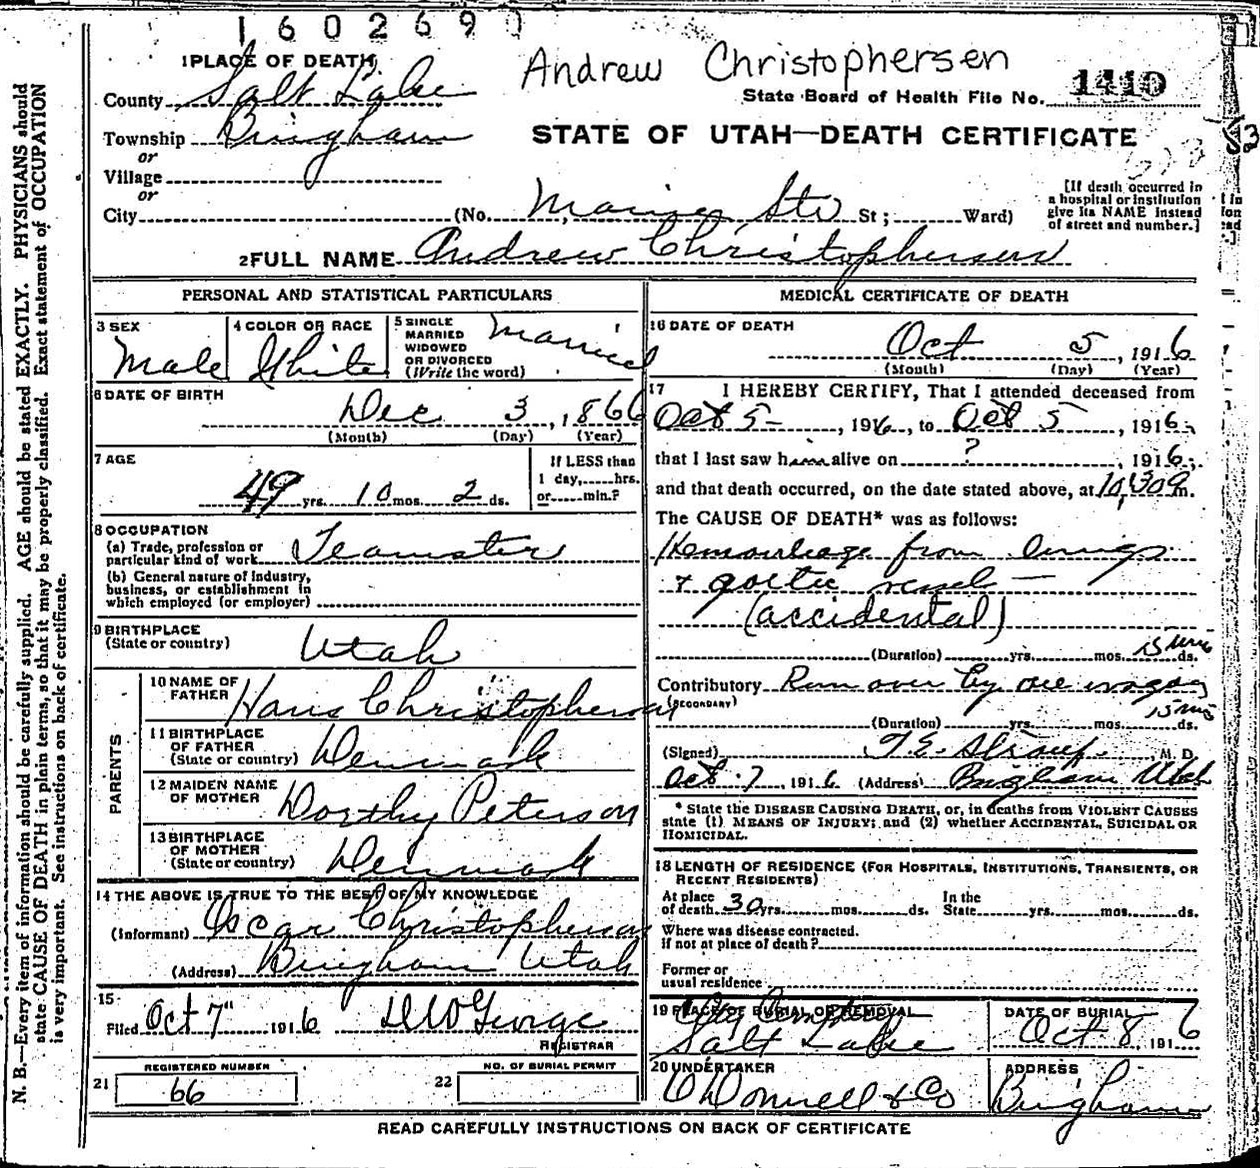 160269
1 PLACE OF DEATH
Andrew Christophersen
County Salt Lake
State Board of Health File No. 1410
Township Bingham
STATE OF UTAH—DEATH CERTIFICATE
or
Village
or
City (No. St; Ward)
[If death occurred in a hospital or institution give its NAME instead of street and number.]
2 FULL NAME Andrew Christophersen
PERSONAL AND STATISTICAL PARTICULARS
3 SEX Male
4 COLOR OR RACE White
5 SINGLE MARRIED WIDOWED OR DIVORCED (Write the word) Married
6 DATE OF BIRTH
Dec 3, 1866
(Month) (Day) (Year)
7 AGE
49 yrs. 10 mos. 2 ds.
If LESS than 1 day, hrs. or min.?
8 OCCUPATION
(a) Trade, profession or particular kind of work Teamster
(b) General nature of industry, business, or establishment in which employed (or employer)
9 BIRTHPLACE (State or country) Utah
PARENTS
10 NAME OF FATHER Hans Christophersen
11 BIRTHPLACE OF FATHER (State or country) Denmark
12 MAIDEN NAME OF MOTHER Dorthy Peterson
13 BIRTHPLACE OF MOTHER (State or country) Denmark
14 THE ABOVE IS TRUE TO THE BEST OF MY KNOWLEDGE
(Informant) Oscar Christophersen
(Address) Bingham Utah
15
Filed Oct 7" 1916 D W George
REGISTRAR
21 REGISTERED NUMBER 66
22 NO. OF BURIAL PERMIT
MEDICAL CERTIFICATE OF DEATH
16 DATE OF DEATH
Oct 5, 1916
(Month) (Day) (Year)
17 I HEREBY CERTIFY, That I attended deceased from
Oct 5-, 1916, to Oct 5, 1916,
that I last saw him alive on ?, 1916,
and that death occurred, on the date stated above, at m.
The CAUSE OF DEATH* was as follows:
Hemorrhage from lungs
& aortic vessel —
(accidental)
(Duration) yrs. mos. 15 mins ds.
Contributory (SECONDARY) Run over by ore wagon
(Duration) yrs. mos. 15 ms ds.
(Signed) F. E. Straup. M. D.
Oct 7, 1916 (Address) Bingham Utah
* State the DISEASE CAUSING DEATH, or, in deaths from VIOLENT CAUSES state (1) MEANS OF INJURY; and (2) whether ACCIDENTAL, SUICIDAL OR HOMICIDAL.
18 LENGTH OF RESIDENCE (FOR HOSPITALS, INSTITUTIONS, TRANSIENTS, OR RECENT RESIDENTS)
At place of death 30 yrs. mos. ds. In the State yrs. mos. ds.
Where was disease contracted, if not at place of death?
Former or usual residence
19 PLACE OF BURIAL OR REMOVAL
Salt Lake
DATE OF BURIAL
Oct 8, 1916
20 UNDERTAKER
O'Donnell & Co
ADDRESS
Bingham
READ CAREFULLY INSTRUCTIONS ON BACK OF CERTIFICATE
N. B.—Every item of information should be carefully supplied. AGE should be stated EXACTLY. PHYSICIANS should
state CAUSE OF DEATH in plain terms, so that it may be properly classified. Exact statement of OCCUPATION
is very important. See instructions on back of certificate.